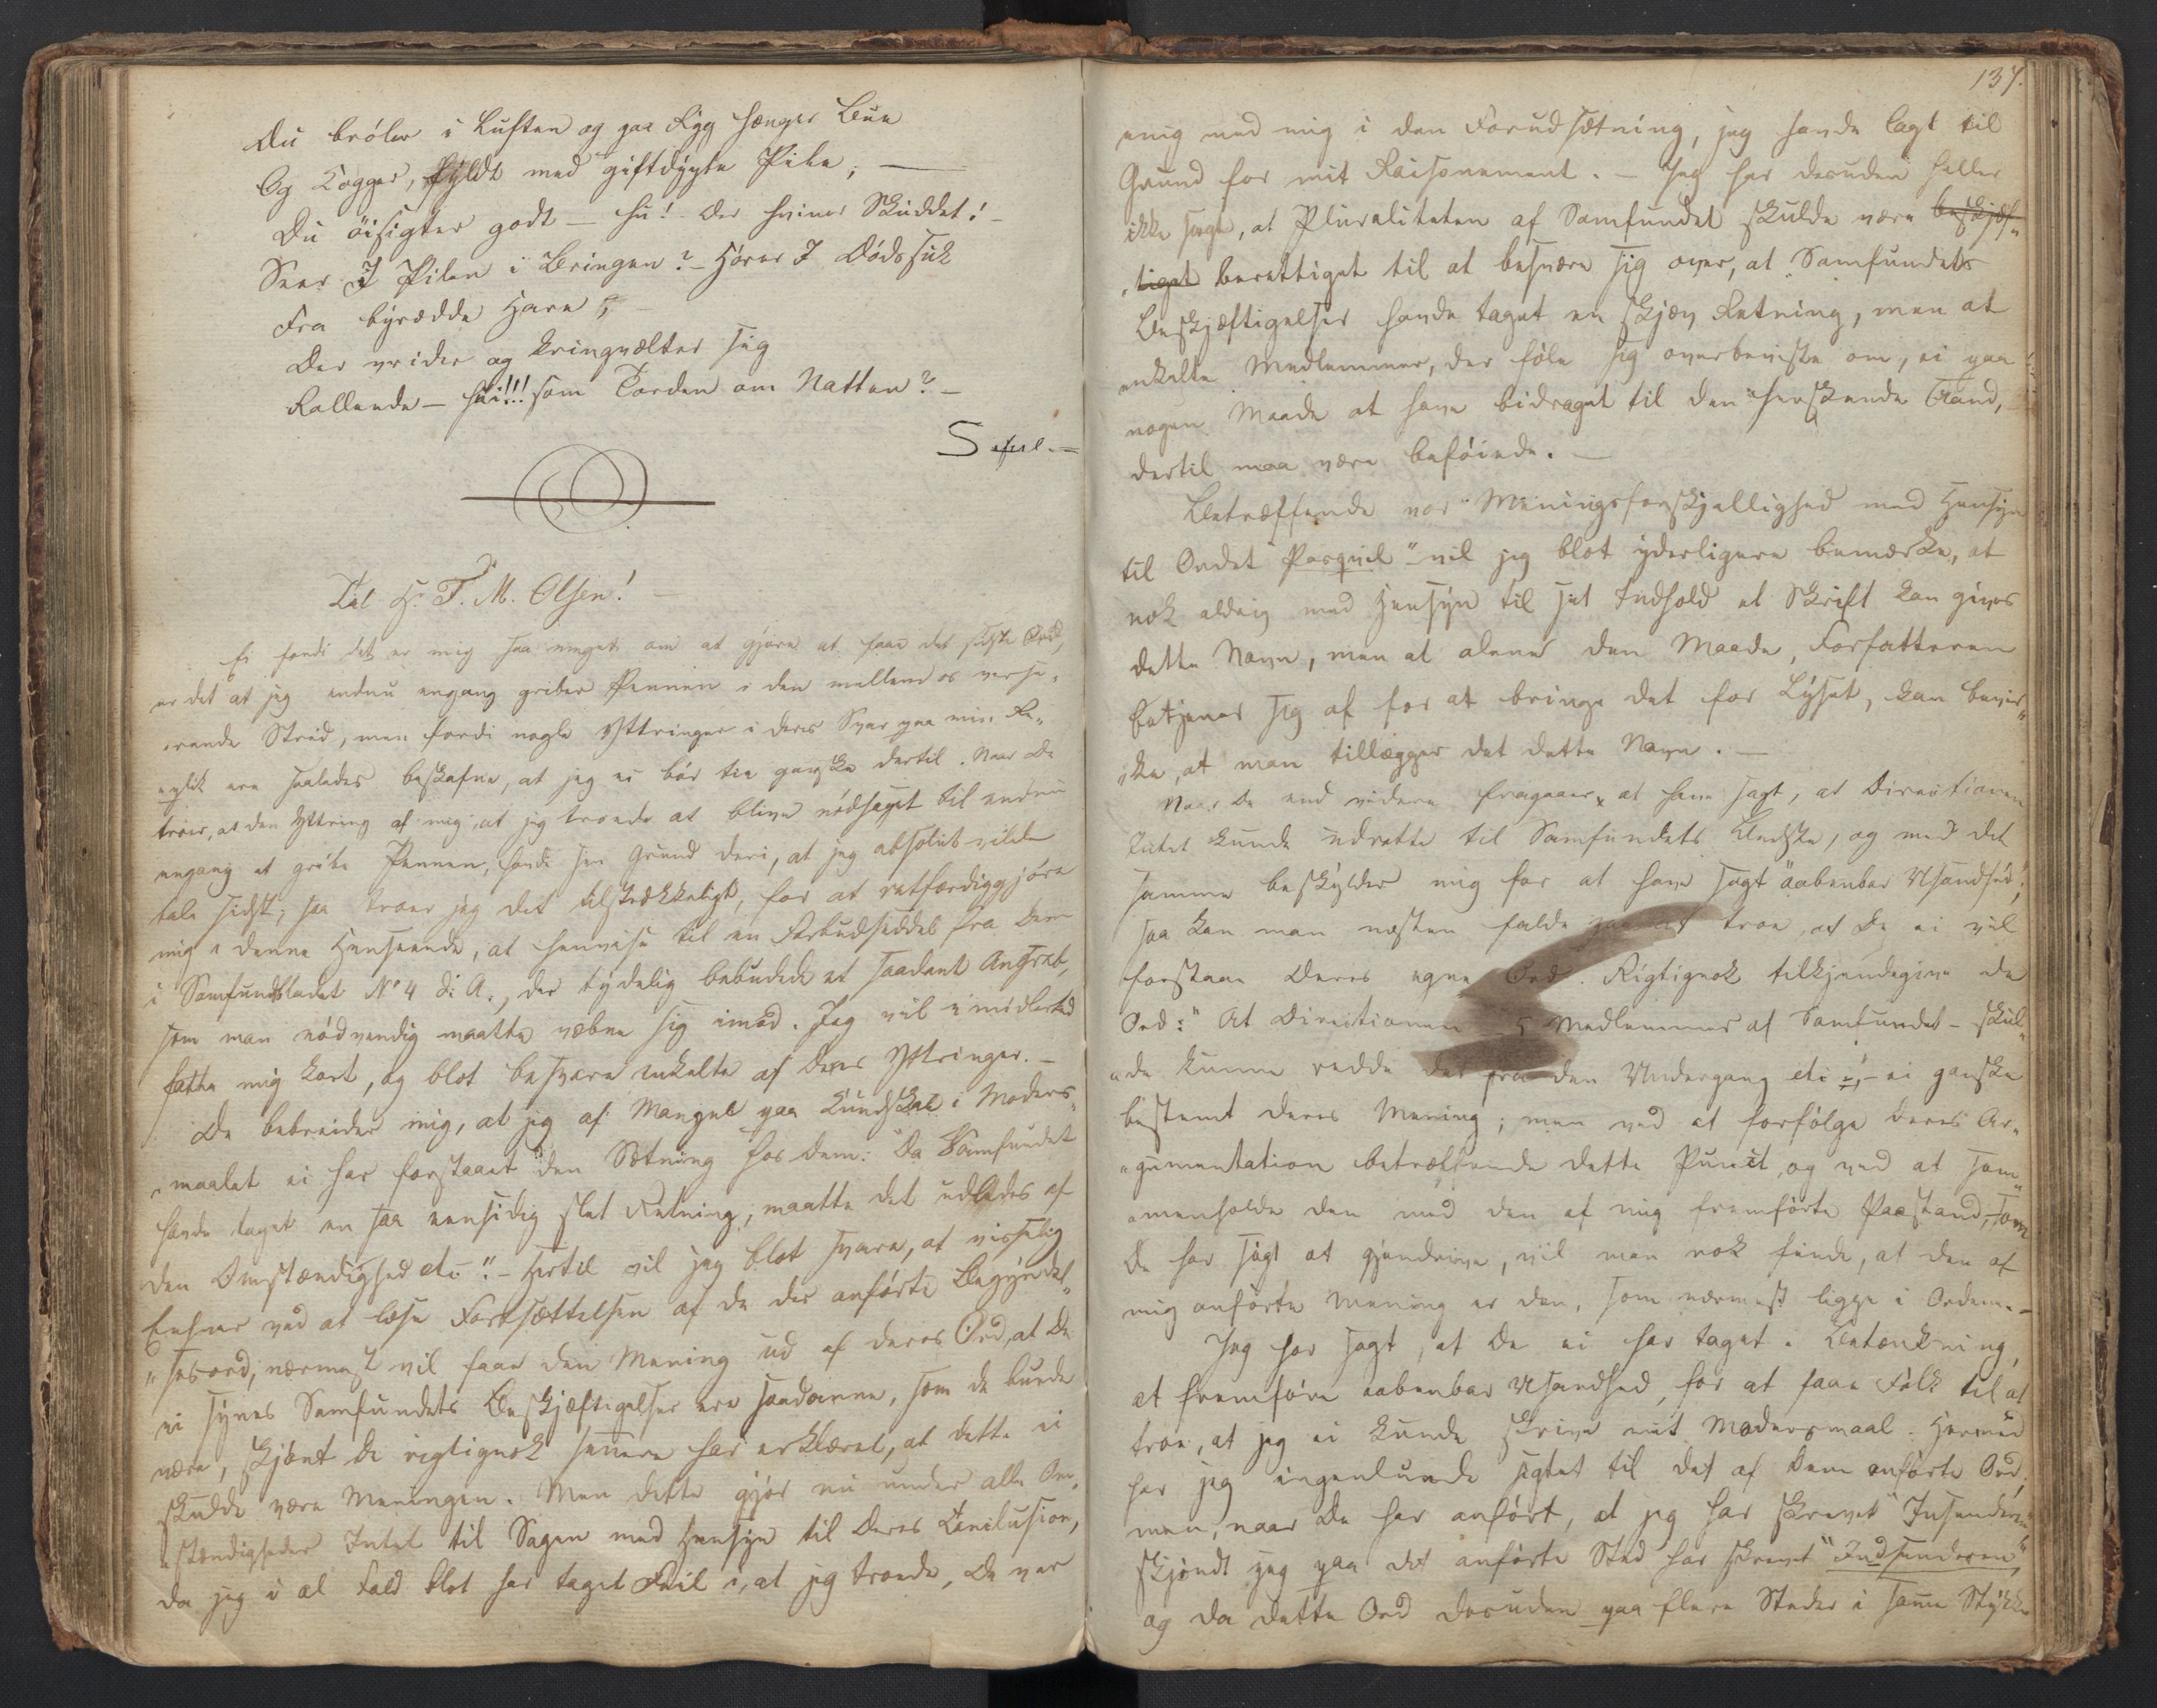 Du bröler i Luften og paa Ryg hænger Bue
Og Kogger, fyldt med giftdygte Pile; —
Du öisigter godt — hu! der hviner Skuddet! —
Seer I Pilen i Bringen? — Hører I Dödssuk
Fra byrædde Hare; —
Der vrider og kringvælter sig
Rallende — hui!!! som Torden om Natten? —
Til Hr. T. M. Olsen! —
Ei fordi det er mig saa meget om at gjøre at faae det sidste Ord,
er det at jeg endnu engang griber Pennen i den mellem os verse„
„rende Strid, men fordi nogle Yttringer i deres Svar paa min Re„
„plik ere saaledes beskafne, at jeg ei bör tie ganske dertil. Naar De
troer, at den Yttring af mig, at jeg troede at blive nödsaget til endnu
engang at gribe Pennen, havde sin Grund deri, at jeg absolut vilde
tale sidst; saa troer jeg det tilstrækkeligt, for at retfærdiggjöre
mig i denne Henseende, at henvise til en Forbudseddel fra Dem
i Samfundsbladet No 4 d: A., der tydelig bebudede et saadant Angreb,
som man nödvendig maatte væbne sig imod. Jeg vil imidlertid
fatte mig kort, og blot besvare enkelte af deres Yttringer. —
De bebreider mig, at jeg af Mangel paa Kundskab i Moders„
„maalet ei har forstaaet den Sætning hos Dem: "Da Samfundet
havde taget en saa eensidig slet Retning, maatte det udledes af
den Omstændighed etc." — Hertil vil jeg blot svare, at visselig
Enhver ved at læse Fortsættelsen af de der anförte Begyndel„
„sesord, nærmest vil faae den Mening ud af deres Ord, at De
ei synes Samfundets Beskjæftigelser ere saadanne, som de burde
være, skjönt De rigtignok senere har erklæret, at dette ei
skulde være Meningen. Men dette gjör nu under alle Om„
„stændigheder Intet til Sagen med Hensyn til Deres Conclusion,
da jeg i al Fald blot har taget Feil i, at jeg troede, De var
137.
enig med mig i den Forudsætning, jeg havde lagt til
Grund for mit Raisonement. — Jeg har desuden heller
ikke sagt, at Pluraliteten af Samfundet skulde være beskjæf„
„tiget berettiget til at besvære sig over, at Samfundets
Beskjæftigelser havde taget en skjæv Retning, men at
enkelte Medlemmer, der föle sig overbeviste om, ei paa
nogen Maade at have bidraget til den herskende Aand,
dertil maa være beföiede. —
Betræffende vor Meningsforskjellighed med Hensyn
til Ordet "Pasquil" vil jeg blot yderligere bemærke, at
nok aldrig med Hensyn til sit Indhold et Skrift kan gives
dette Navn, men at alene den Maade, Forfatteren
betjener sig af for at bringe det for Lyset, kan bevir„
„ke, at man tillægger det dette Navn. —
Naar De end videre fragaaer at have sagt, at Directionen
Intet kunde udrette til Samfundets Bedste, og med det
samme beskylder mig for at have sagt "aabenbar Usandhed",
saa kan man næsten falde paa at troe, at De ei vil
forstaae Deres egne Ord. Rigtignok tilkjendegive de
Ord: "At Directionen — 5 Medlemmer af Samfundet — skul„
„de kunne redde det fra den Undergang etc", — ei ganske
bestemt deres Mening; men ved at forfölge deres Ar„
„gumentation betræffende dette Punct, og ved at sam„
„menholde den med den af mig fremförte Paastand, som
De har sögt at gjendrive, vil man nok finde, at den af
mig anförte Mening er den, som nærmest ligge i Ordene. —
Jeg har sagt, at De ei har taget i Betænkning,
at fremföre aabenbar Usandhed, for at faae Folk til at
troe, at jeg ei kunde skrive mit Modersmaal. Hermed
har jeg ingenlunde sigtet til det af Dem anförte Ord,
men, naar De har anfört, at jeg har skrevet "Insenderen"
skjöndt jeg paa det anförte Sted har skrevet "Indsenderen",
og da dette Ord desuden paa flere Steder i samme Stykke